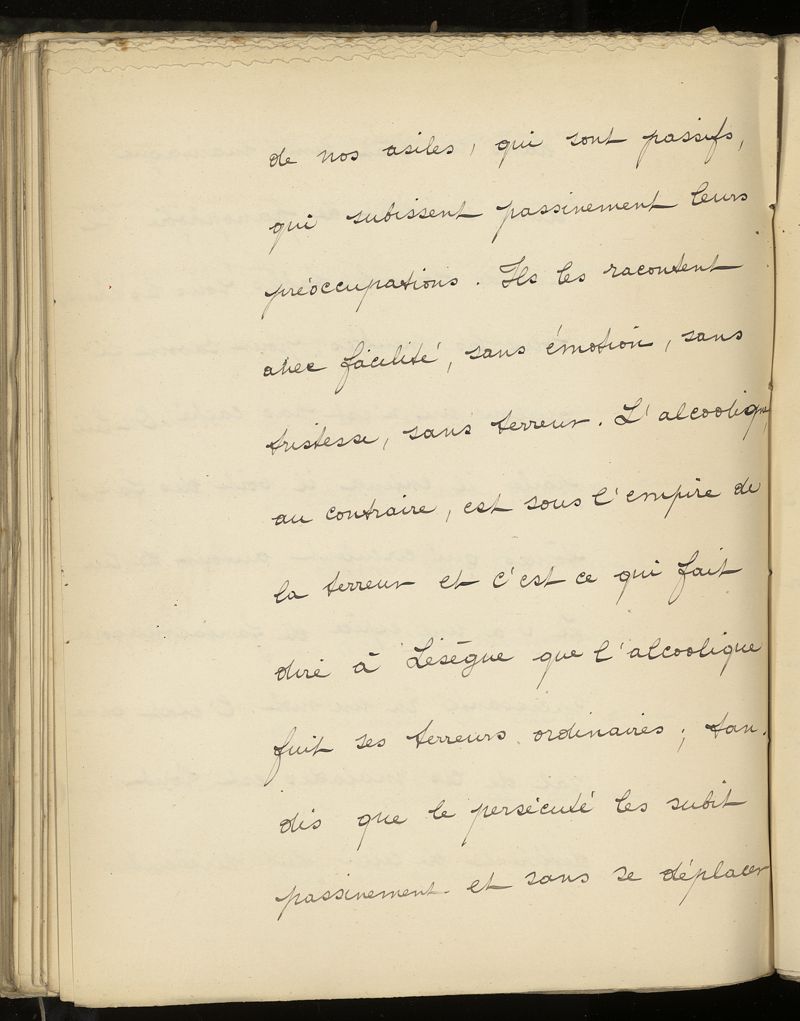 de nos asiles, qui sont passifs,
qui subissent passivement leurs
préoccupations. Ils les racontent
avec facilité, sans émotion, sans
tristesse, sans terreur. L'alcoolique,
au contraire, est sous l'empire de
la terreur et c'est ce qui fait
dire à Lésègue que l'alcoolique
fuit ses terreurs ordinaires ; tan-
dis que le persécuté les subit
passivement et sans se déplacer